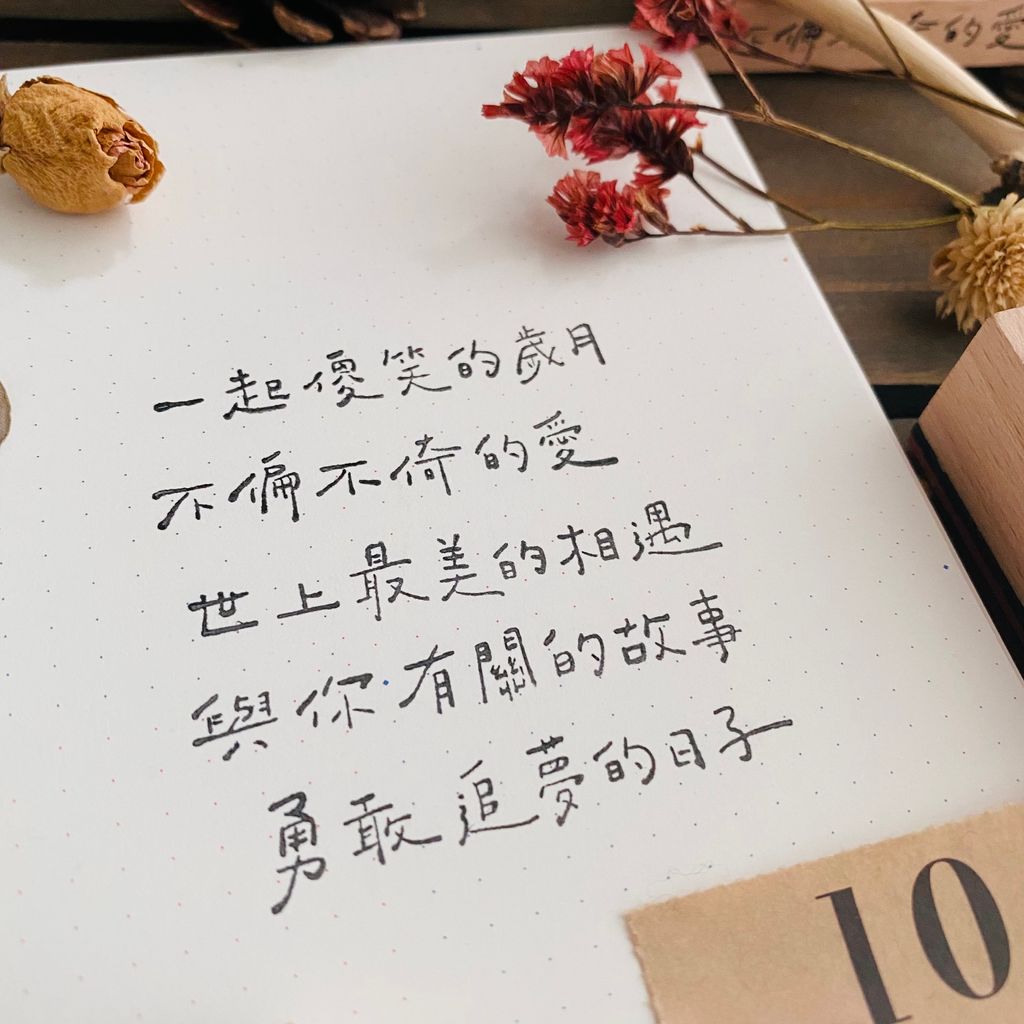 的愛
一起傻笑的歲月
不偏不倚的愛
世上最美的相遇
與你有關的故事
勇敢追夢的日子
10